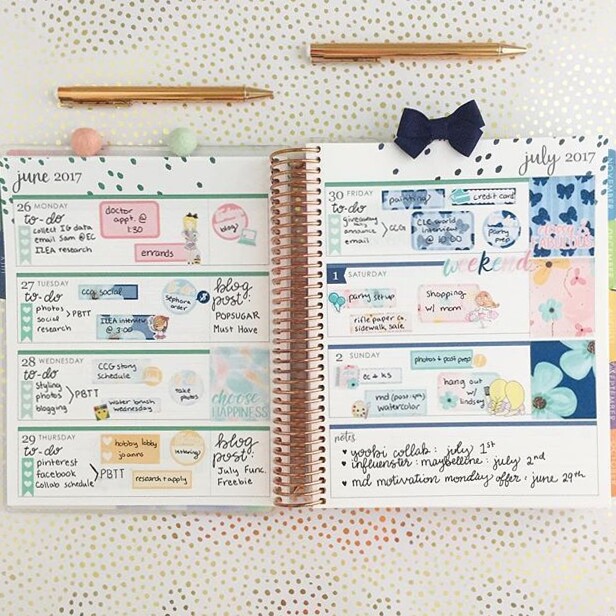 june 2017
26 MONDAY
to-do
collect IG data
email Sam @ EC
ILEA research
doctor
appt. @
1:30
errands
blog!
27 TUESDAY
to-do
photos
social
research
PBTT
ccg social
ILEA interview
@ 3:00
Sephora
order
blog
post:
POPSUGAR
Must Have
28 WEDNESDAY
to-do
styling
photos
blogging
PBTT
CCG story
schedule
water brush
wednesday
take
photos
choose
HAPPINESS
29 THURSDAY
to-do
pinterest
facebook
collab schedule
PBTT
hobby lobby
joanns
research + apply
blog
post:
July Func.
Freebie
july 2017
30 FRIDAY
to-do
giveaway
announce
email
CCG
painting
credit card
CLC world
interview
@ 10:00
party
prep
FABULOUS
weekend
1 SATURDAY
party setup
rifle paper co.
sidewalk sale
shopping
w/ mom
2 SUNDAY
photos + post prep
ec + ks
md (post ups)
watercolor
hang out
w/
lindsey
notes
yoobi collab : july 1st
influenster : maybelline : july 2nd
md motivation monday offer : june 29th